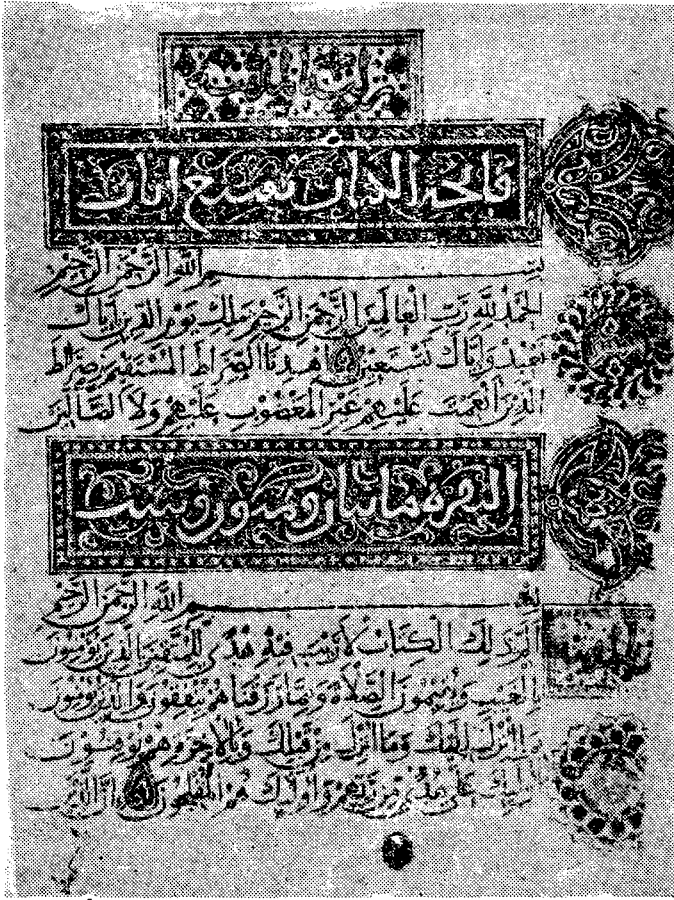 فاتحة الكتاب سبع ايات
بسم الله الرحمن الرحيم
الحمد لله رب العالمين الرحمن الرحيم ملك يوم الدين اياك
نعبد واياك نستعين اهدنا الصراط المستقيم صراط
الذين أنعمت عليهم غير المغضوب عليهم ولا الضالين
البقرة مايتان وثمنون وست
بسم الله الرحمن الرحيم
الم ذلك الكتاب لا ريب فيه هدى للمتقين الذين يؤمنون
بالغيب ويقيمون الصلاة ومما رزقناهم ينفقون والذين يؤمنون
بما انزل اليك وما انزل من قبلك وبالاخرة هم يوقنون
اوليك على هدى من ربهم واوليك هم المفلحون ان الذين